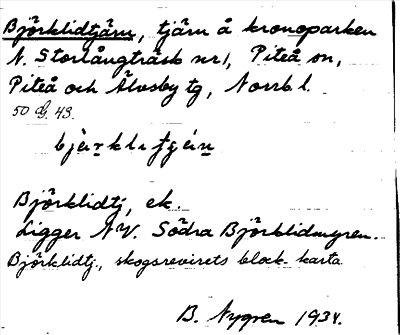 Björklidtjärn, tjärn å kronoparken
N. Storlångträsk nr 1, Piteå sn,
Piteå och Älvsby tg, Norrb. l.
50 G. 43.
Björklidtj, ek.
Ligger NV. Södra Björklidmyren.
Björklidtj., skogsrevirets block-karta
B. Nygren 1934.